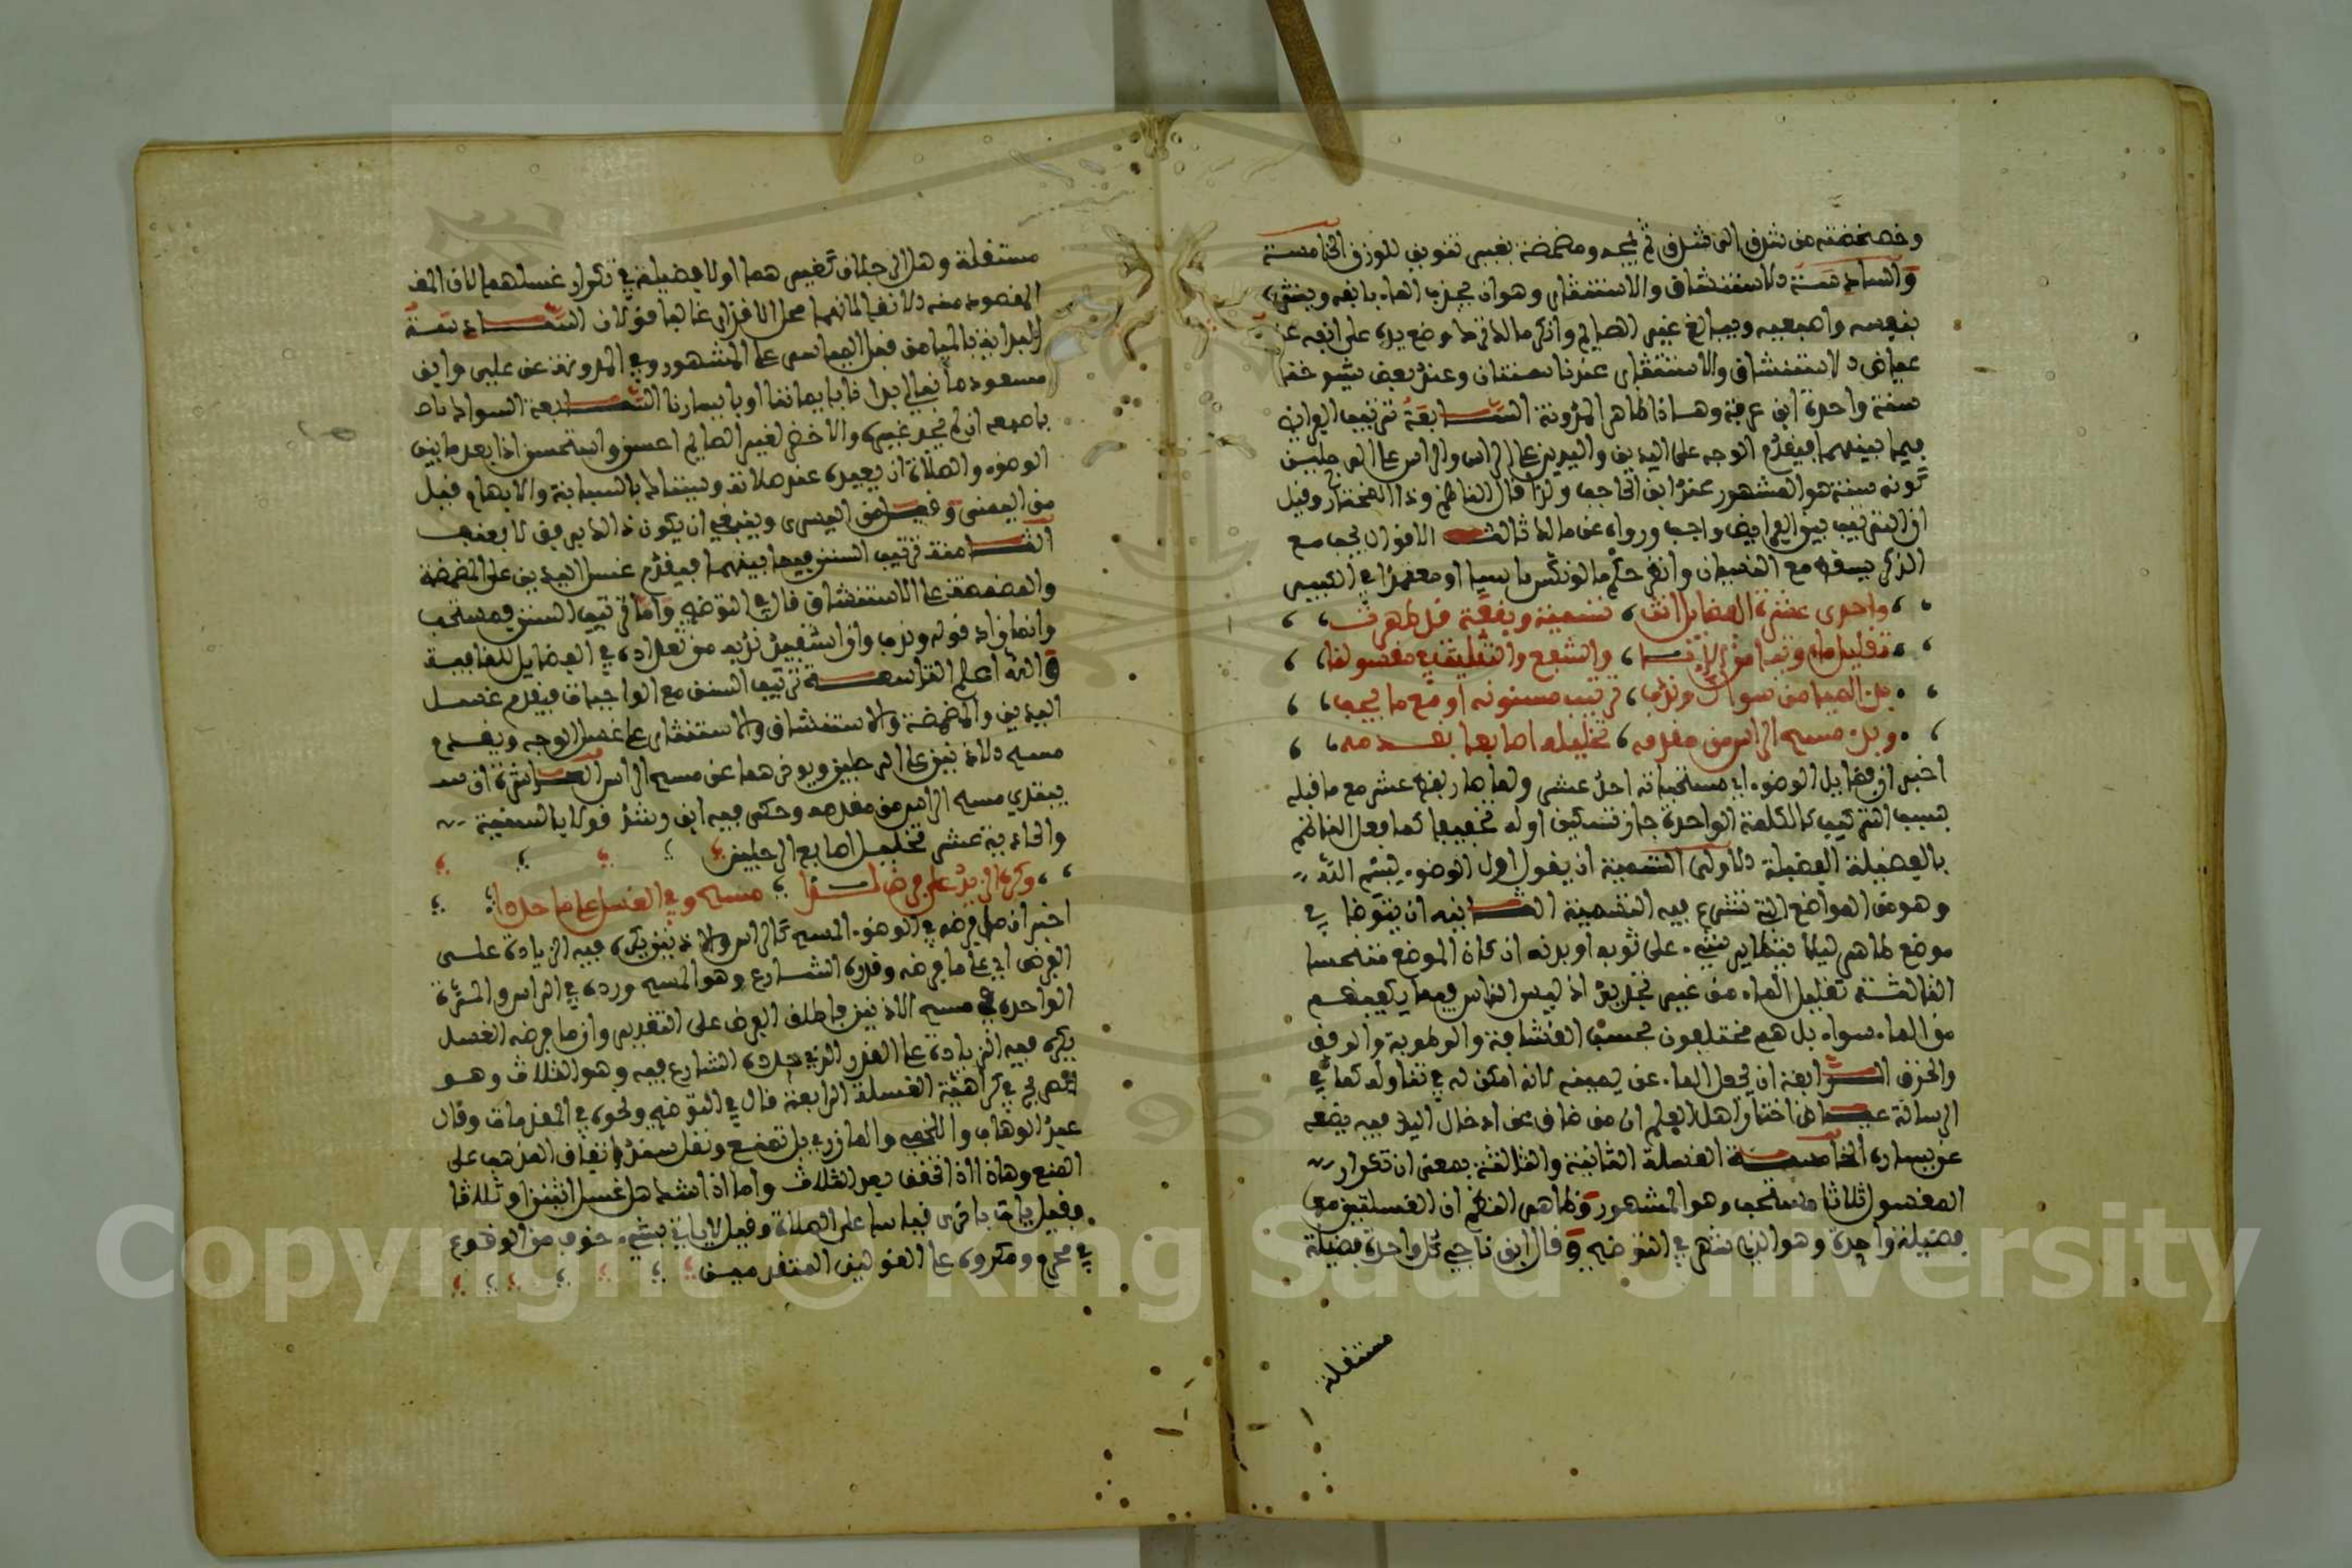 وخضخضته من شدق الى شدق ثم لمجه ومضمضة بغير تنوين للوزن الخامسة
والسادسة الاستنشاق والاستنثار وهو ان يجذب الماء بانفه وينثره
بنفسه واصبعيه ويبالغ غير الصايم وانكر مالك نثره دون وضع يده على انفه
عياض الاستنشاق والاستنثار عندنا سنتان وعند بعض شيوخنا
سنة واحدة ابن عرفة وهذا ظاهر المدونة السابعة ترتيب الفرايض
فيما بينها فيقدم الوجه على اليدين واليدين على الراس والراس على الرجلين
كونه سنة هو المشهور عند ابن الحاجب ولذا قال الناظم وذا المختار وقيل
ان الترتيب بين الفرايض واجب ورواه عن مالك ثالث الاقوال يجب مع
الذكر يسقط مع النسيان وانظر حكم ما لو نكس ناسيا او معتمدا في الكبير
واحدى عشرة الفضايل اتت تسمية وبقعة قد طهرت
تقليل ماء وتيامن الانا والشفع والتثليث في مغسولنا
بدء الميامن سواك وندب ترتيب مسنونه او مع ما يجب
وبدء مسح الراس من مقدمه تخليله اصابعا بقدمه
اخبر ان فضايل الوضوء اي مستحباته احد عشر ولما صار لفظ عشر مع ما قبله
بسبب التركيب كالكلمة الواحدة جاز تسكين اوله تخفيفا كما فعل الناظم
بالفضيلة الفضيلة الاولى التسمية ان يقول اول الوضوء بسم الله
وهو من المواضع التي تشرع فيه التسمية الثانية ان يتوضا في
موضع طاهر ليلا يتطاير شيء على ثوبه او بدنه ان كان الموضع متنجسا
الثالثة تقليل الماء من غير تحديد اذ ليس الناس فيما يكفيهم
من الماء سواء بل هم مختلفون بحسب القشافة والرطوبة والرفق
والخرق الرابعة ان يجعل الماء عن يمينه لانه امكن له في تناوله كما في
الرسالة عياض اختار اهل العلم ان من ضاق عن ادخال اليد فيه يضعه
عن يساره الخامسة الغسلة الثانية والثالثة بمعنى ان تكرار
المغسول ثلاثا مستحب وهو المشهور وظاهر النظم ان الغسلتين معا
فضيلة واحدة وهو الذي شهر في التوضيح وقال ابن ناجي كل واحدة فضيلة
مستقلة
مستقلة وهل الرجلان كغيرهما او لا فضيلة في تكرار غسلهما لان المقـ
المقصود منه الانقا لانهما محل الاقذار غالبا قولان السادسة
البداية بالميامن قبل المياسر على المشهور وفي المدونة عن علي وابن
مسعود ما نبالي بدانا بايماننا او بايسارنا السابعة السواك ناد
باصبعه ان لم يجد غيره والاخضر لغير الصايم احسن واستحسن اذا بعد ما بين
الوضوء والصلاة ان يعيده عند صلاته ويستاك بالسبابة والابهام قيل
من اليمنى وقيل من اليسرى وينبغي ان يكون ذلك برفق لا بعنف
الثامنة ترتيب السنن فيما بينها فيقدم غسل اليدين على المضمضة
والمضمضة على الاستنشاق قال في التوضيح واما ترتيب السنن فمستحب
وانما زاد قوله وندب وان استفيد ندبه من تعداده في الفضايل للقافية
والله اعلم التاسعة ترتيب السنن مع الواجبات فيقدم غسل
اليدين والمضمضة والاستنشاق والاستنثار على غسل الوجه ويقدم
مسح الاذنين على الرجلين ويوخرهما عن مسح الراس العاشرة ان
يبتدي مسح الراس من مقدمه وحكى فيه ابن رشد قولا بالسنية
والحادية عشر تخليل اصابع الرجلين
وكره الزيد على فرض لدى مسح وفي الغسل على ما حددا
اخبر ان كل فرضه في الوضوء المسح كالراس والاذنين يكره فيه الزيادة على
الفرض اي على ما فرضه وقدره الشارع وهو المسح ورده في الراس والمرة
الواحدة في مسح الاذنين فاطلق الفرض على التقدير وان ما فرضه الغسل
يكره فيه الزيادة على القدر الذي حدده الشارع فيه وهو الثلاث وهو
في كراهية الغسلة الرابعة قال في التوضيح ونحوه في المقدمات وقال
عبد الوهاب واللخمي والمازري بل تمنع ونقل سند اتفاق المذهب على
المنع وهذا اذا تحقق بعد الثلاث واما اذا شك هل غسل اثنين او ثلاثا
فقيل ياتي باخرى قياسا على الصلاة وقيل لا ياتي بشيء خوف من الوقوع
في محرم ومكروه على القولين المتقدمين
Copyright © King Saud University
1957